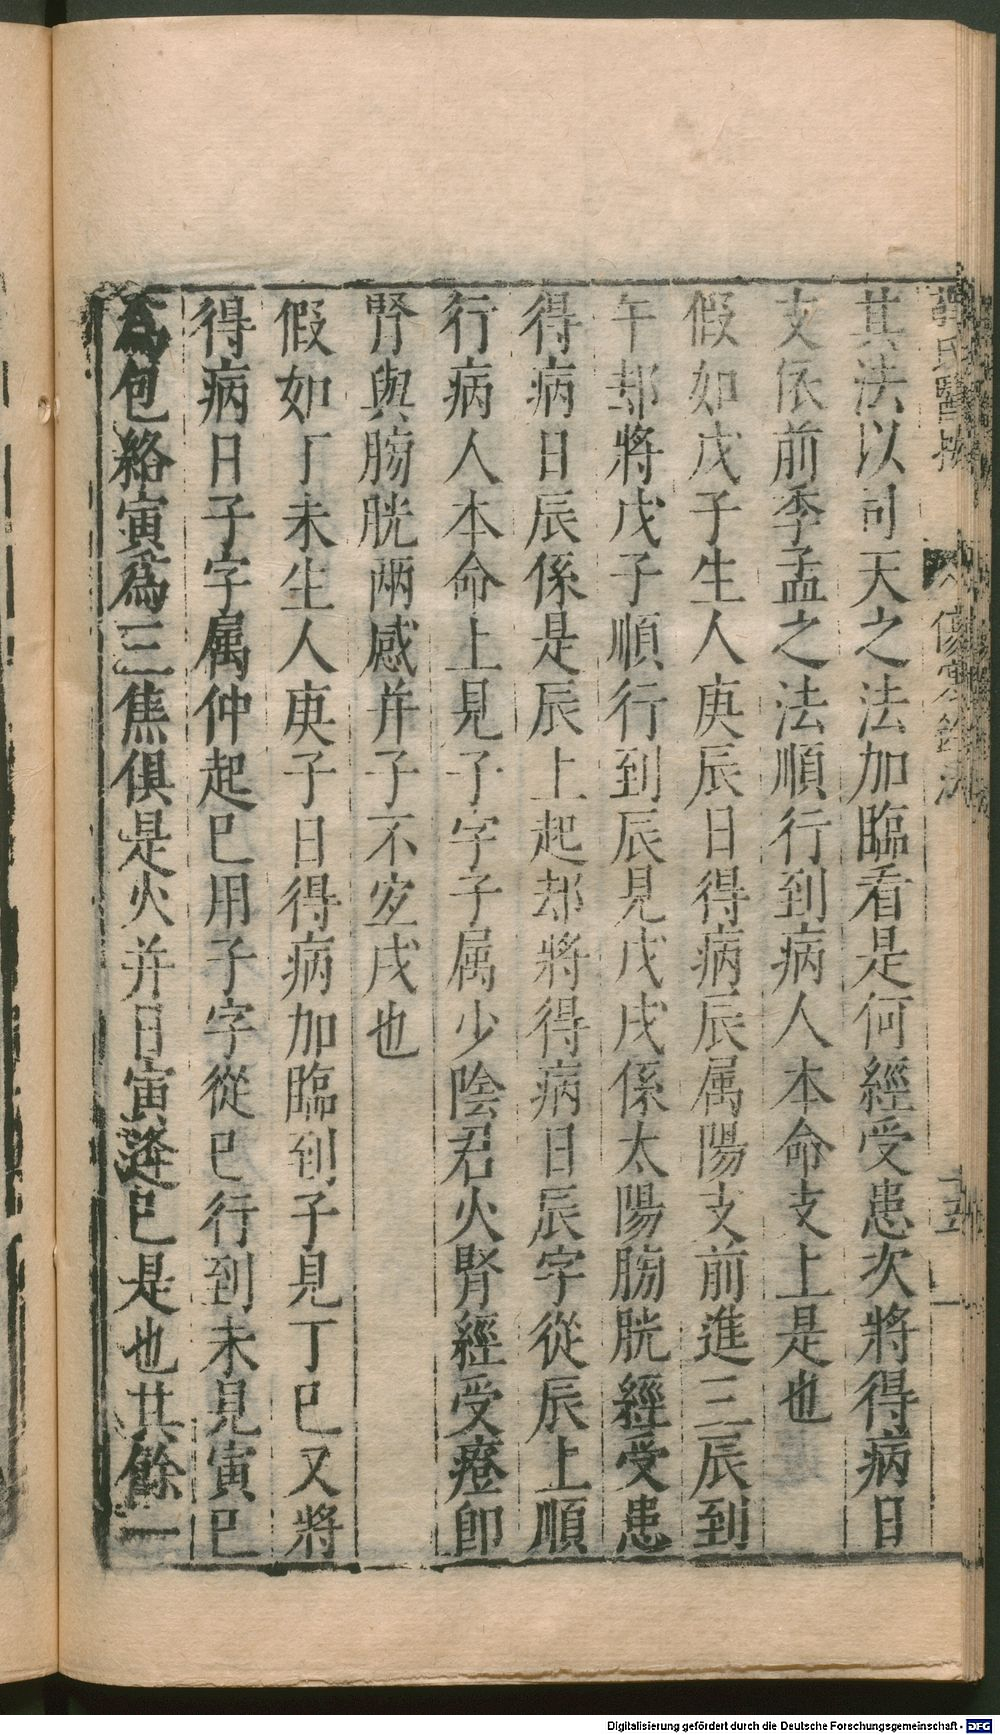 薛氏醫按 傷寒鈐法 十五
其法以司天之法加臨看是何經受患次將得病日
支依前季孟之法順行到病人本命支上是也
假如戊子生人庚辰日得病辰属陽支前進三辰到
午却將戊子順行到辰見戊戌係太陽膀胱經受患
得病日辰係是辰上起却將得病日辰字從辰上順
行病人本命上見子字子属少陰君火腎經受癦即
腎與膀胱兩感并子不宜戌也
假如丁未生人庚子日得病加臨到子見丁巳又將
得病日子字属仲起巳用子字從巳行到未見寅巳
為包絡寅為三焦俱是火并日寅逢巳是也其餘一
Digitalisierung gefördert durch die Deutsche Forschungsgemeinschaft - DFG